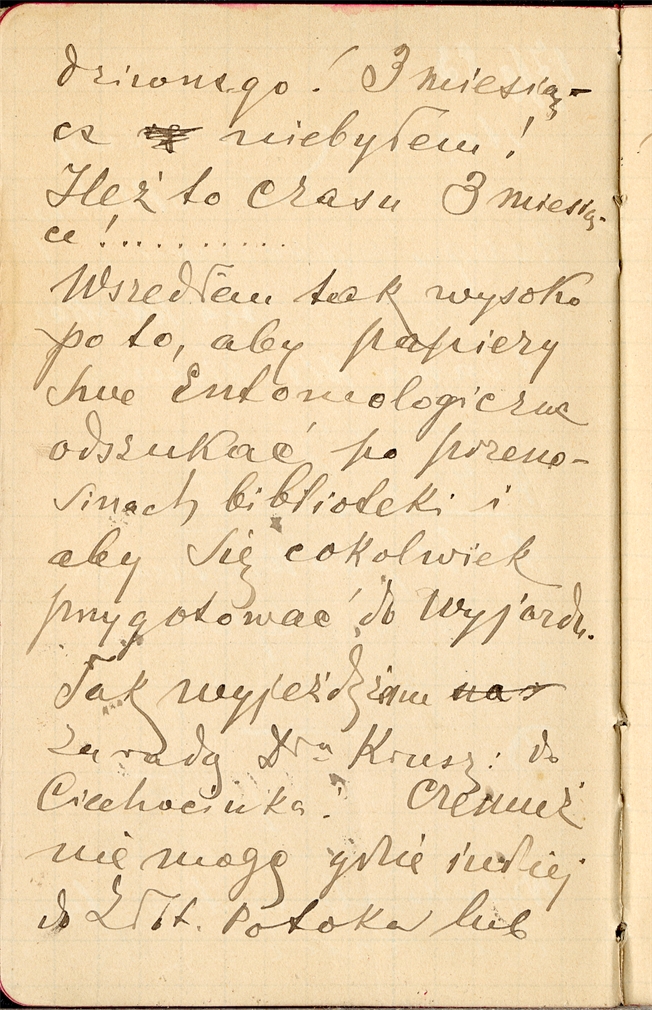 dziwnego! 3 miesią-
ce niebyłem!
Ileż to czasu 3 miesią-
ce!..........
Wszedłem tak wysoko
po to, aby papiery
swe Entomologiczne
odszukać po przeno-
sinach biblioteki i
aby się cokolwiek
przygotować do wyjazdu.
Tak wyjeżdżam
za radą Dra Krusz: do
Ciechocinka! Czemuż
nie mogę gdzie indziej
do Złot. Potoka lub